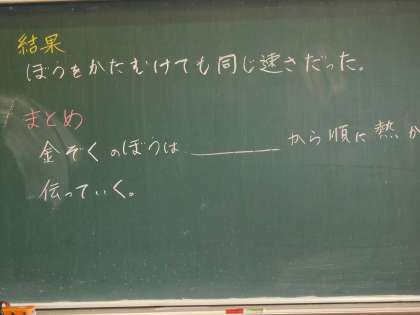 結果
ぼうをかたむけても同じ速さだった。
まとめ
金ぞくのぼうは＿＿＿＿から順に熱が
伝っていく。